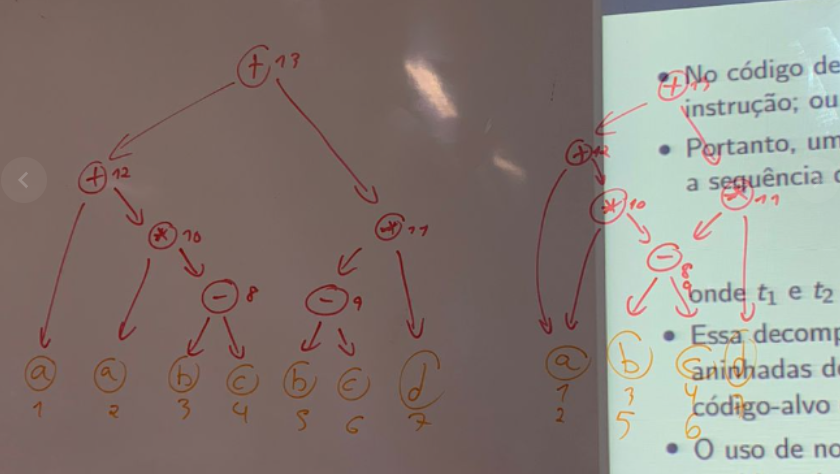 + 13
+ 12
* 10
* 11
- 8
- 9
a a b c b c d
1 2 3 4 5 6 7
+ 13
+ 12
* 10
* 11
-
8
9
a b c d
1 3 4 7
2 5 6
• No código de
instrução; ou
• Portanto, um
a sequência
onde t₁ e t₂
• Essa decomp
aninhadas d
código-alvo
• O uso de no